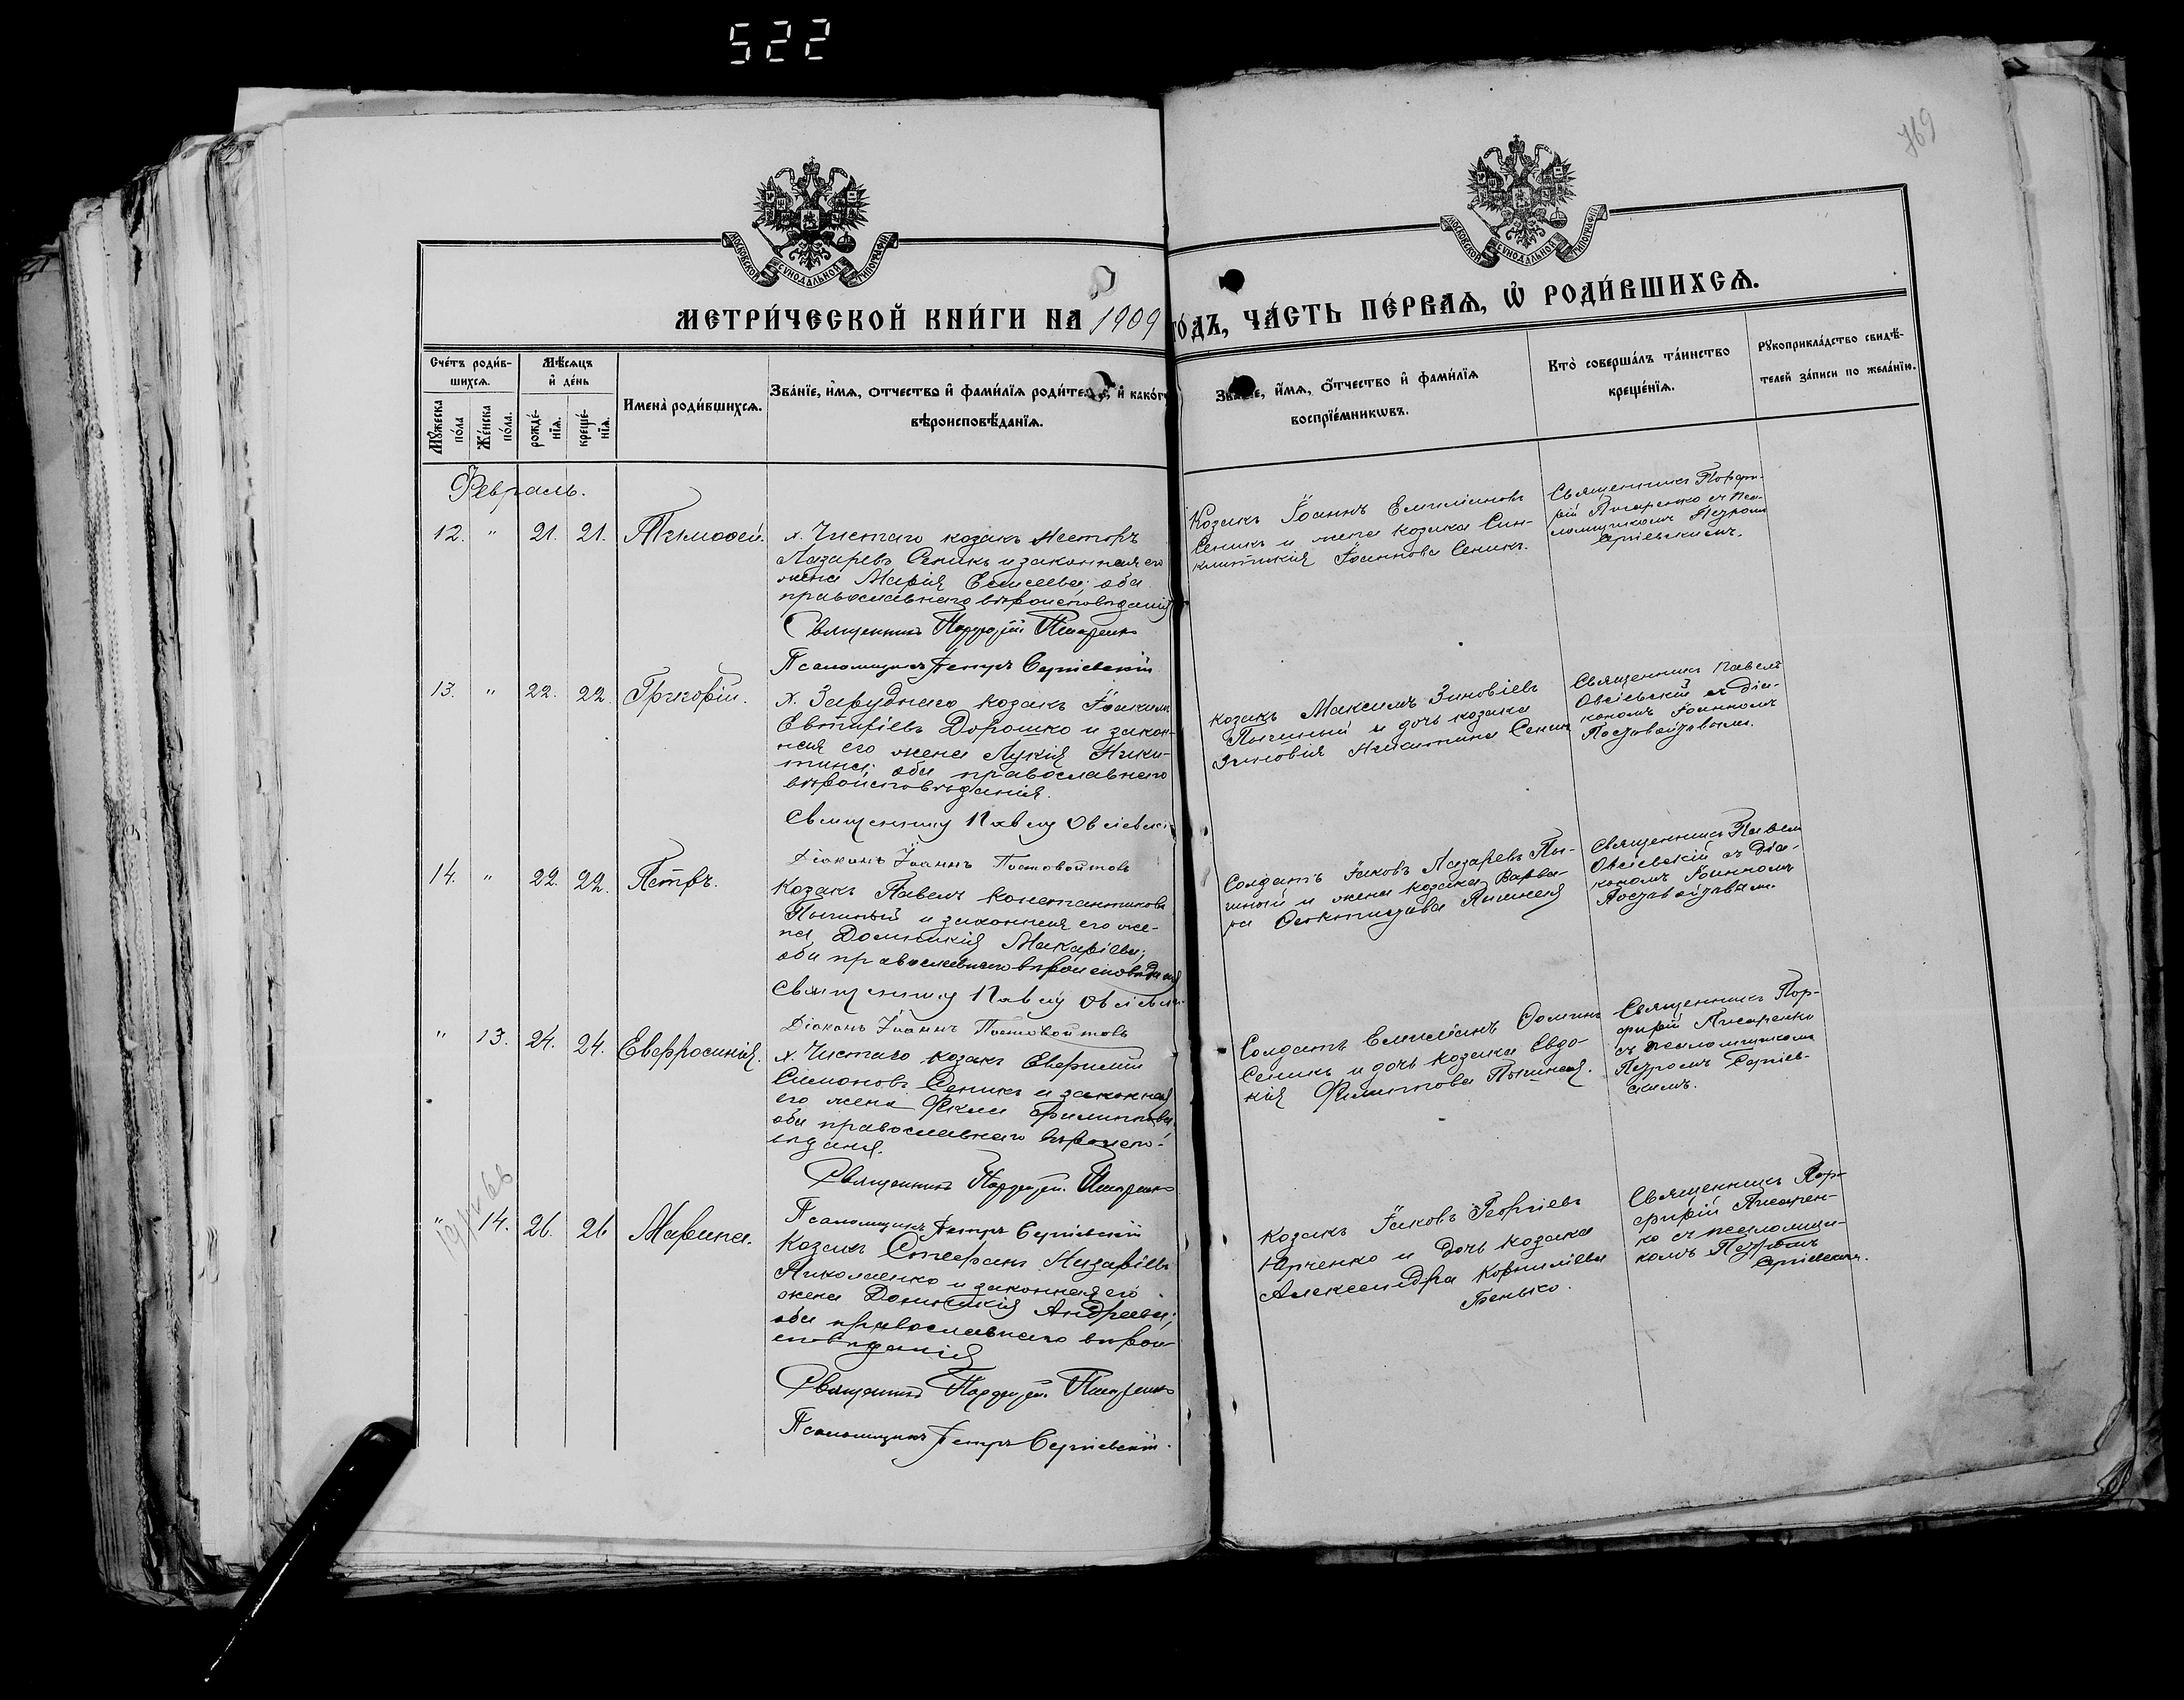 522
769
МОСКОВСКОЙ СѴНОДАЛЬНОЙ ТИПОГРАФІИ
МОСКОВСКОЙ СѴНОДАЛЬНОЙ ТИПОГРАФІИ
МЕТРИ́ЧЕСКОЙ КНИ́ГИ НА 1909 ГО́ДЪ, ЧА́СТЬ ПЕ́РВАѦ, Ѡ҆ РОДИ́ВШИХСѦ.
Сче́тъ роди́в-
шихсѧ.
Мѣ́сѧцъ
и҆ де́нь
Мꙋ́жеска
по́ла
Же́нска
по́ла.
рожде́-
нїѧ.
креще́-
нїѧ.
Имена̀ роди́вшихсѧ.
Зва́нїе, и҆́мѧ, ѻтчество и҆ фами́лїѧ роди́телей, и҆ како́гѡ
вѣроисповѣ́данїѧ.
Зва́нїе, и҆́мѧ, ѻ҆́тчество и҆ фами́лїѧ
воспрїе́мникѡвъ.
Кто̀ соверша́лъ та́инство
креще́нїѧ.
Рꙋкоприкла́дство свидѣ́-
телей за́писи по жела́нїю.
Февраль.
12. " 21. 21. Тимоѳей.
х. Чистаго козакъ Несторъ
Лазаревъ Сеникъ и законная его
жена Марія Елисеева; оба
православнаго вѣроисповѣданія
Священникъ Порфирій Писаренко
Псаломщикъ Петръ Сергіевскій
Козакъ Іоаннъ Емиліановъ
Сеникъ и жена козака Син-
клитикія Іоаннова Сеникъ.
Священникъ Порфи-
рій Писаренко съ пса-
ломщикомъ Петромъ
Сергіевскимъ.
13. " 22. 22. Григорій.
х. Заруднаго козакъ Іоакимъ
Евтихіевъ Дорошко и закон-
ная его жена Лукія Ники-
тина; оба православнаго
вѣроисповѣданія.
Священникъ Павелъ Овсіевскій
Діаконъ Іоаннъ Постовойтовъ
козакъ Максимъ Зиновіевъ
Пышный и дочь козака
Зиновія Никитина Сеникъ
Священникъ Павелъ
Овсіевскій съ діа-
кономъ Іоанномъ
Постовойтовымъ.
14. " 22. 22. Петръ.
Козакъ Павелъ Константиновъ
Пышный и законная его же-
на Домникія Макаріева;
оба православнаго вѣроисповѣданія
Священникъ Павелъ Овсіевскій
Діаконъ Іоаннъ Постовойтовъ
Солдатъ Іаковъ Лазаревъ Пы-
шный и жена козака Варва-
ра Ѳеоктистова Пышная
Священникъ Павелъ
Овсіевскій съ діа-
кономъ Іоанномъ
Постовойтовымъ.
" 13. 24. 24. Евфросинія.
х. Чистаго козакъ Евфимій
Симоновъ Сеникъ и законная
его жена Ѳекла Филиппова
оба православнаго вѣроиспо-
вѣданія.
Священникъ Порфирій Писаренко
Псаломщикъ Петръ Сергіевскій
Солдатъ Емиліанъ Ѳоминъ
Сеникъ и дочь козака Евдо-
кія Филиппова Пышная.
Священникъ Пор-
фирій Писаренко
съ псаломщикомъ
Петромъ Сергіев-
скимъ.
" 14. 26. 26 Марина.
Козакъ Стефанъ Назаріевъ
Николаенко и законная его
жена Домникія Андреева;
оба православнаго вѣрои-
споведанія
Священникъ Порфирій Писаренко
Псаломщикъ Петръ Сергіевскій.
Козакъ Іаковъ Георгіевъ
Юрченко и дочь козака
Александра Корниліева
Бенько.
Священникъ Пор-
фирій Писарен-
ко съ псаломщи-
комъ Петромъ
Сергіевскимъ.